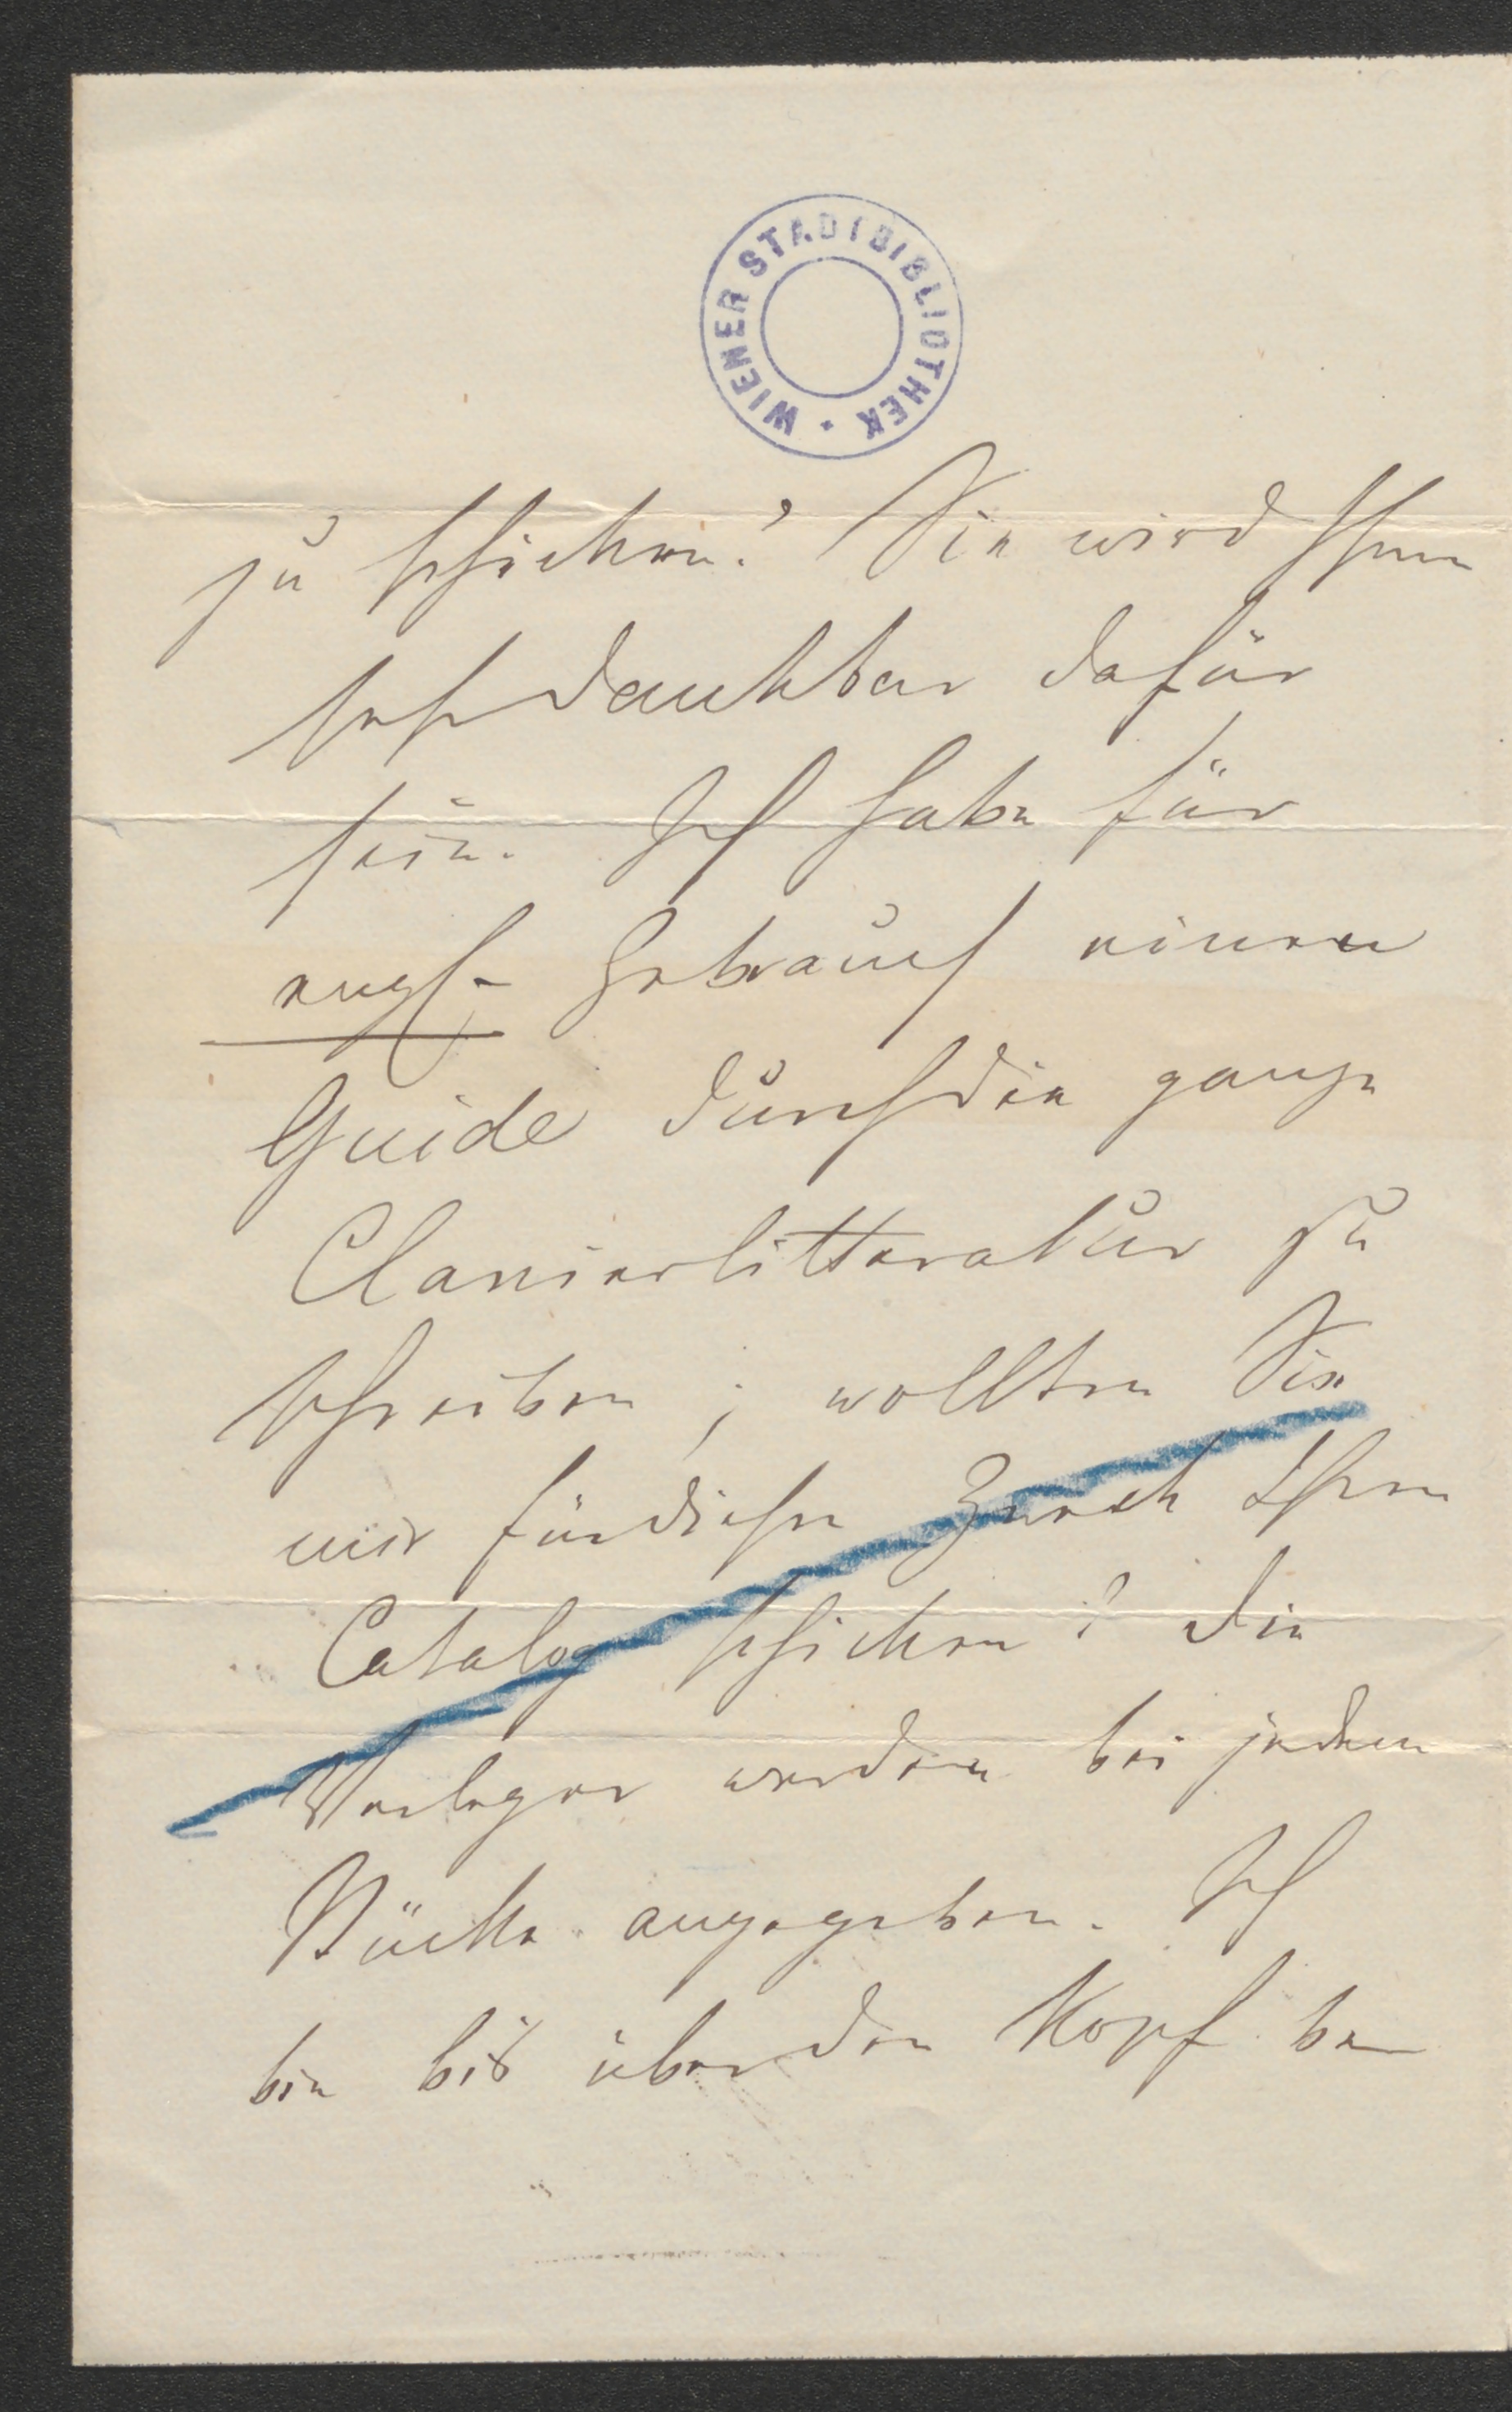 WIENER STADTBIBLIOTHEK
zu schicken? Sie wird Ihnen
sehr dankbar dafür
sein. Ich habe für
engl. Gebrauch einen
Guide durch die ganze
Clavierlitteratur zu
schreiben; wollten Sie
mir für diesen Zweck Ihren
Catalog schicken? Die
Verleger werden bei jedem
Stücke angegeben. Ich
bin bis über den Kopf be